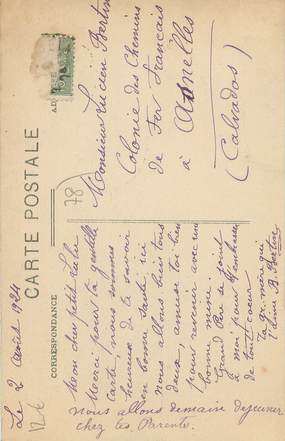 CARTE POSTALE
CORRESPONDANCE
Le 2 Août 1924
Mon cher petit Lulu
Merci pour ta gentille
carte, nous sommes
heureux de te savoir
en bonne santé ici
nous allons bien tous
deux, amuse toi bien
pour revenir avec une
bonne mine.
Grand Père se joint
à moi pour t'embrasser
de tout coeur
Ta gr. mère qui
t'aime B. Bertin
nous allons demain dejeuner
chez tes Parents.
78
Monsieur Lucien Bertin
Colonie des Chemins
de Fer Français
à Asnelles
(Calvados)